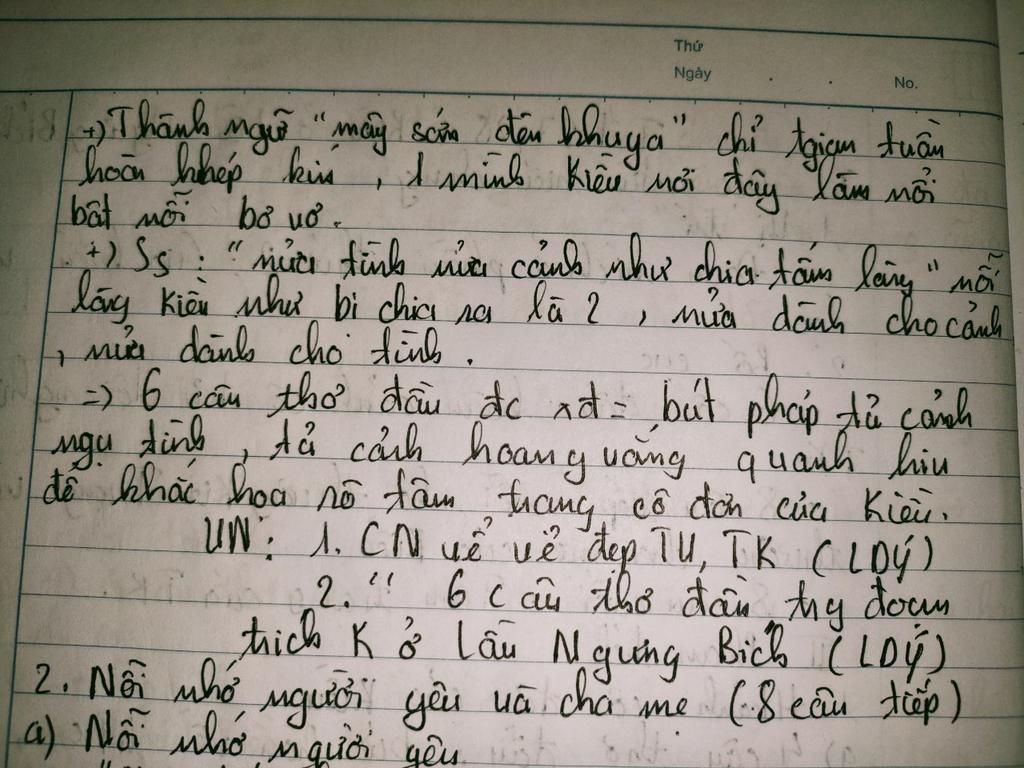 Thứ
Ngày
No.
+) Thành ngữ "mây sớm đèn khuya" chỉ tgian tuần
hoàn khép kín, 1 mình Kiều nơi đây làm nổi
bật nỗi bơ vơ.
+) Ss : "nửa tình nửa cảnh như chia tấm lòng" nỗi
lòng Kiều như bị chia ra là 2, nửa dành cho cảnh
, nửa dành cho tình.
=> 6 câu thơ đầu đc xd = bút pháp tả cảnh
ngụ tình, tả cảnh hoang vắng quạnh hiu
để khắc họa rõ tâm trạng cô đơn của Kiều.
VN: 1. CN về vẻ đẹp TV, TK (LDÝ)
2. " 6 câu thơ đầu trg đoạn
trích K ở lầu Ngưng Bích (LDÝ)
2. Nỗi nhớ người yêu và cha mẹ (8 câu tiếp)
a) Nỗi nhớ người yêu